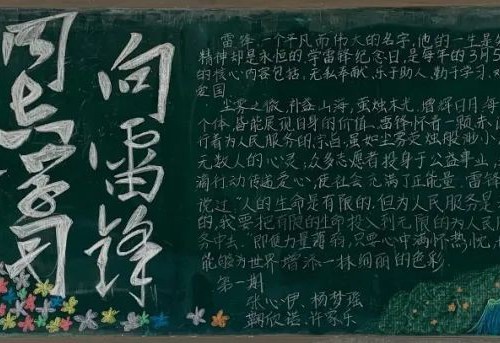 向雷锋
同志学习
雷锋一个平凡而伟大的名字,他的一生是
精神却是永恒的学雷锋纪念日,是每年的3月5
的核心内容包括,无私奉献,乐于助人,勤于学习,
爱国.
尘雾之微,补益山海,萤烛末光,增辉日月.每
个体,皆能展现自身的价值.雷锋怀着一颗赤
行着为人民服务的宗旨,虽如尘雾萤烛般渺小
无数人的心灵;众多志愿者投身于公益事业,
滴行动传递爱心,使社会充满了正能量.雷锋
说过"人的生命是有限的,但为人民服务是
的,我要把有限的生命投入到无限的为人民
务中去.即使力量薄弱,只要心中满怀热忱,
能够为世界增添一抹绚丽的色彩.
第一期
张心伊、杨梦瑶
鞠欣诺、许家乐